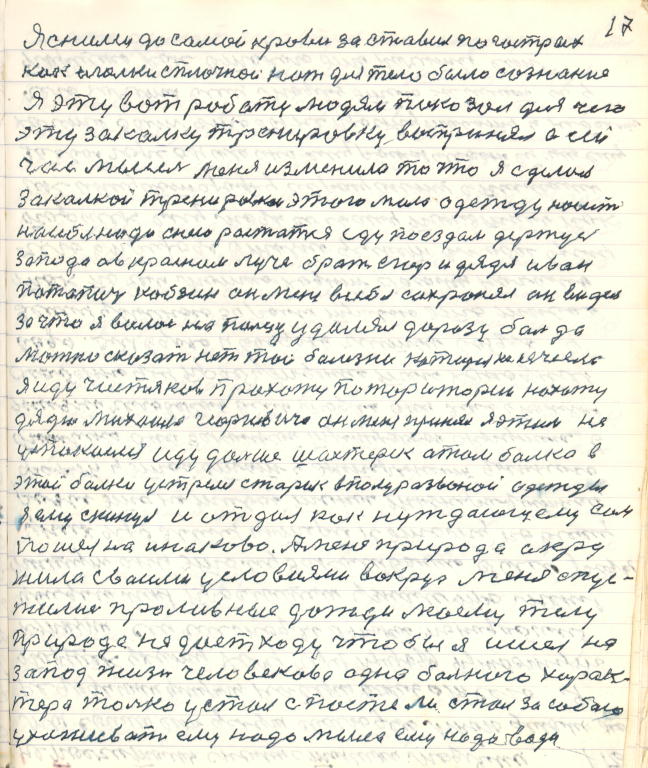 17
Я сними до самой крови заставил по острых
как иголки сплочной нот для тело было сознание
Я эту вот работу людям показал для чего
эту закалку тренировку воспринял а сей
час мысль меня изменила то что я сделал
закалкой тренировки этого мало одежду носит
надо снею растатся еду поездам держуся
запада в красном луче брат Егор и дядя иван
потапич кобзин он меня сохронял он видел
зачто я волос на полцу удалял дорогу балда
можно сказат нет той болезни которая не
я иду чистяков прохожу по территории нахожу
дядю михаила он меня принял я этим не
успокоился иду дальше шахтерск а там балка в
этой балки устрел старик в полуразвоной одежды
я ему скинул и отдал как нуждающему сам
пошел на инаково. А меня природа окру
жила своими условиями вокруг меня опус-
жилис проливные дожди моему телу
природа не дает ходу чтобы я ишел на
запад жизн человекова одна болного харак-
тера толко устал с постели стал за собою
ухаживат ему надо мила ему нада вада